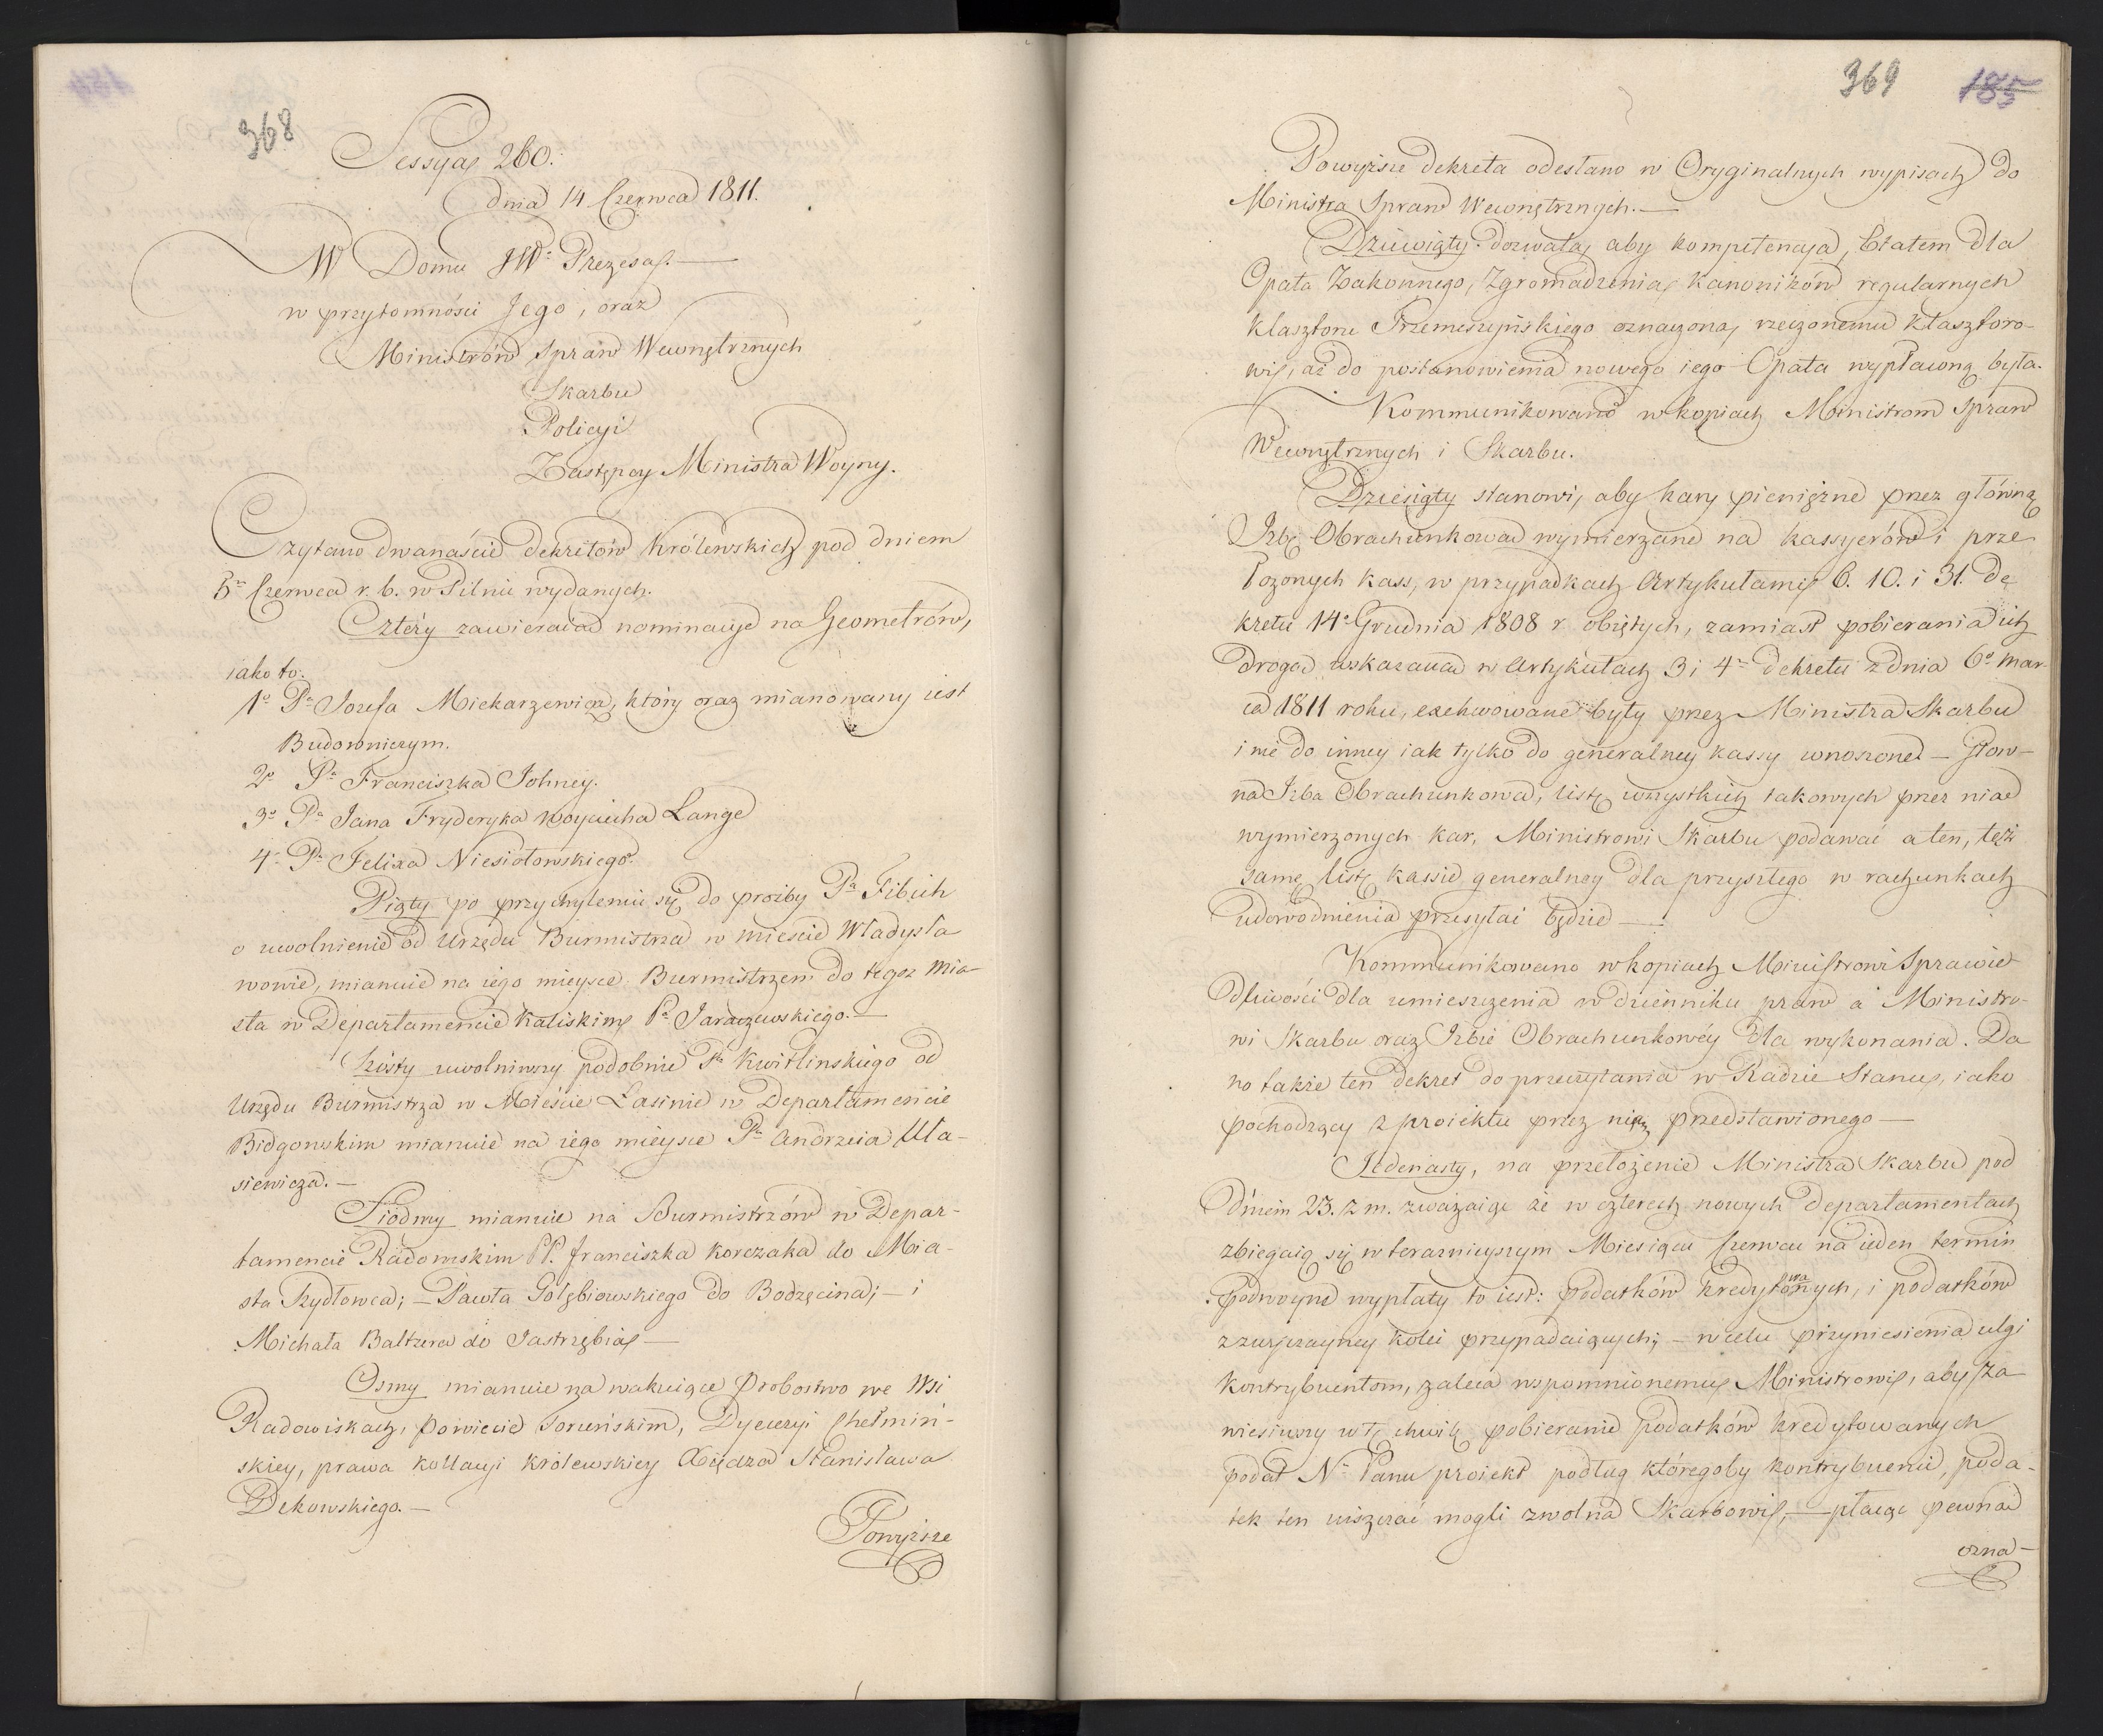 368
Sessya 260.
dnia 14 Czerwca 1811.
W Domu JWo Prezesa.—
w przytomności Jego, oraz
Ministrów Spraw Wewnętrznych
Skarbu
Policyi
Zastępcy Ministra Woyny.
Czytano dwanaście dekretów Królewskich pod dniem
5m Czerwca r. b. w Pilnie wydanych.
Cztéry zawieraia nominacye na Geometrów,
iako to.
1o Pa Jozefa Miekarzewicza, który oraz mianowany iest
Budowniczym.
2o Pa Franciszka Johney.
3o Pa Jana Fryderyka Woyciecha Lange
4o Pa Felixa Niesiołowskiego.
Piąty po przychyleniu się do proźby Pa Fibich
o uwolnienie od Urzędu Burmistrza w mieście Władysła
wowie, mianuie na iego mieysce Burmistrzem do tegoz mia-
sta w Departamencie Kaliskim Pa Jaraczewskiego.—
Szósty uwolniwszy podobnie Pa Kwitlinskiego od
Urzędu Burmistrza w Mieście Łasinie w Departamencie
Bidgowskim mianuie na iego mieysce Pa Andrzeia Uła-
siewicza.—
Siódmy mianuie na Burmistrzów w Depar-
tamencie Radomskim PP. franciszka Korczaka do Mia-
sta Szydłowca; — Pawła Gołębiowskiego do Bodzęcina; — i
Michała Baltzera do Jastrzębia —
Osmy mianuie na wakuiące Probostwo we Wsi
Radowiskach, Powiecie Toruńskim, Dyecezyi Chełmiń-
skiey, prawa kollacyi Królewskiey Xiędza Stanisława
Dekowskiego.—
Powyższe
369 185
Powyższe dekreta odesłano w Oryginalnych wypisach do
Ministra Spraw Wewnętrznych.—
Dziewiąty. dozwala, aby kompetencya, Etatem dla
Opata Zakonnego, Zgromadzenia Kanoników regularnych
klasztoru Trzemeszyńskiego oznaczona, rzeczonemu klasztoro-
wi, aż do postanowienia nowego iego Opata wypłaconą była.
Kommunikowano w kopiach Ministrom Spraw
Wewnętrznych i Skarbu.
Dziesiąty stanowi, aby kary pieniężne przez główną
Izbę Obrachunkowa wymierzane na kassyerów i prze
łozonych kass, w przypadkach Artykułami 6. 10. i 31. de
kretu 14o Grudnia 1808 r. obiętych, zamiast pobierania ich
droga wskazana w Artykułach 3 i 4m dekretu z dnia 6o mar-
ca 1811 roku, exekwowane były przez Ministra Skarbu
i nie do inney iak tylko do generalney kassy wnoszone — Głow-
na Izba Obrachunkowa, listę wszystkich takowych przez nia
wymierzonych kar, Ministrowi Skarbu podawać a ten, też
samę listę kassie generalney dla przyszłego w rachunkach
udowodnienia przesyłać będzie —
Kommunikowano w kopiach Ministrowi Sprawie
dliwości dla umieszczenia w dzienniku praw a Ministro-
wi Skarbu oraz Izbie Obrachunkowéy dla wykonania. Da
no także ten dekret do przeczytania w Radzie Stanu, iako
pochodzący z proiektu przez nią przedstawionego —
Jedenasty, na przełożenie Ministra Skarbu pod
Dniem 23. z. m. zważaiąc że w czterech nowych departamentach
zbiegaią się w teraznieyszym Miesiącu Czerwcu na ieden termin
Podwoyne wypłaty to iest: podatków kredytowanych, i podatków
z zwyczayney kolei przypadaiących; — w celu przyniesienia ulgi
kontrybuentom, zaleca wspomnionemu Ministrowi, aby za
wiesiwszy w tę chwilę pobieranie podatków kredytowanych
podał No Panu proiekt podług któregoby kontrybuenci, poda-
tek ten uiszczać mogli zwolna Skarbowi, — płacąc pewna
ozna-